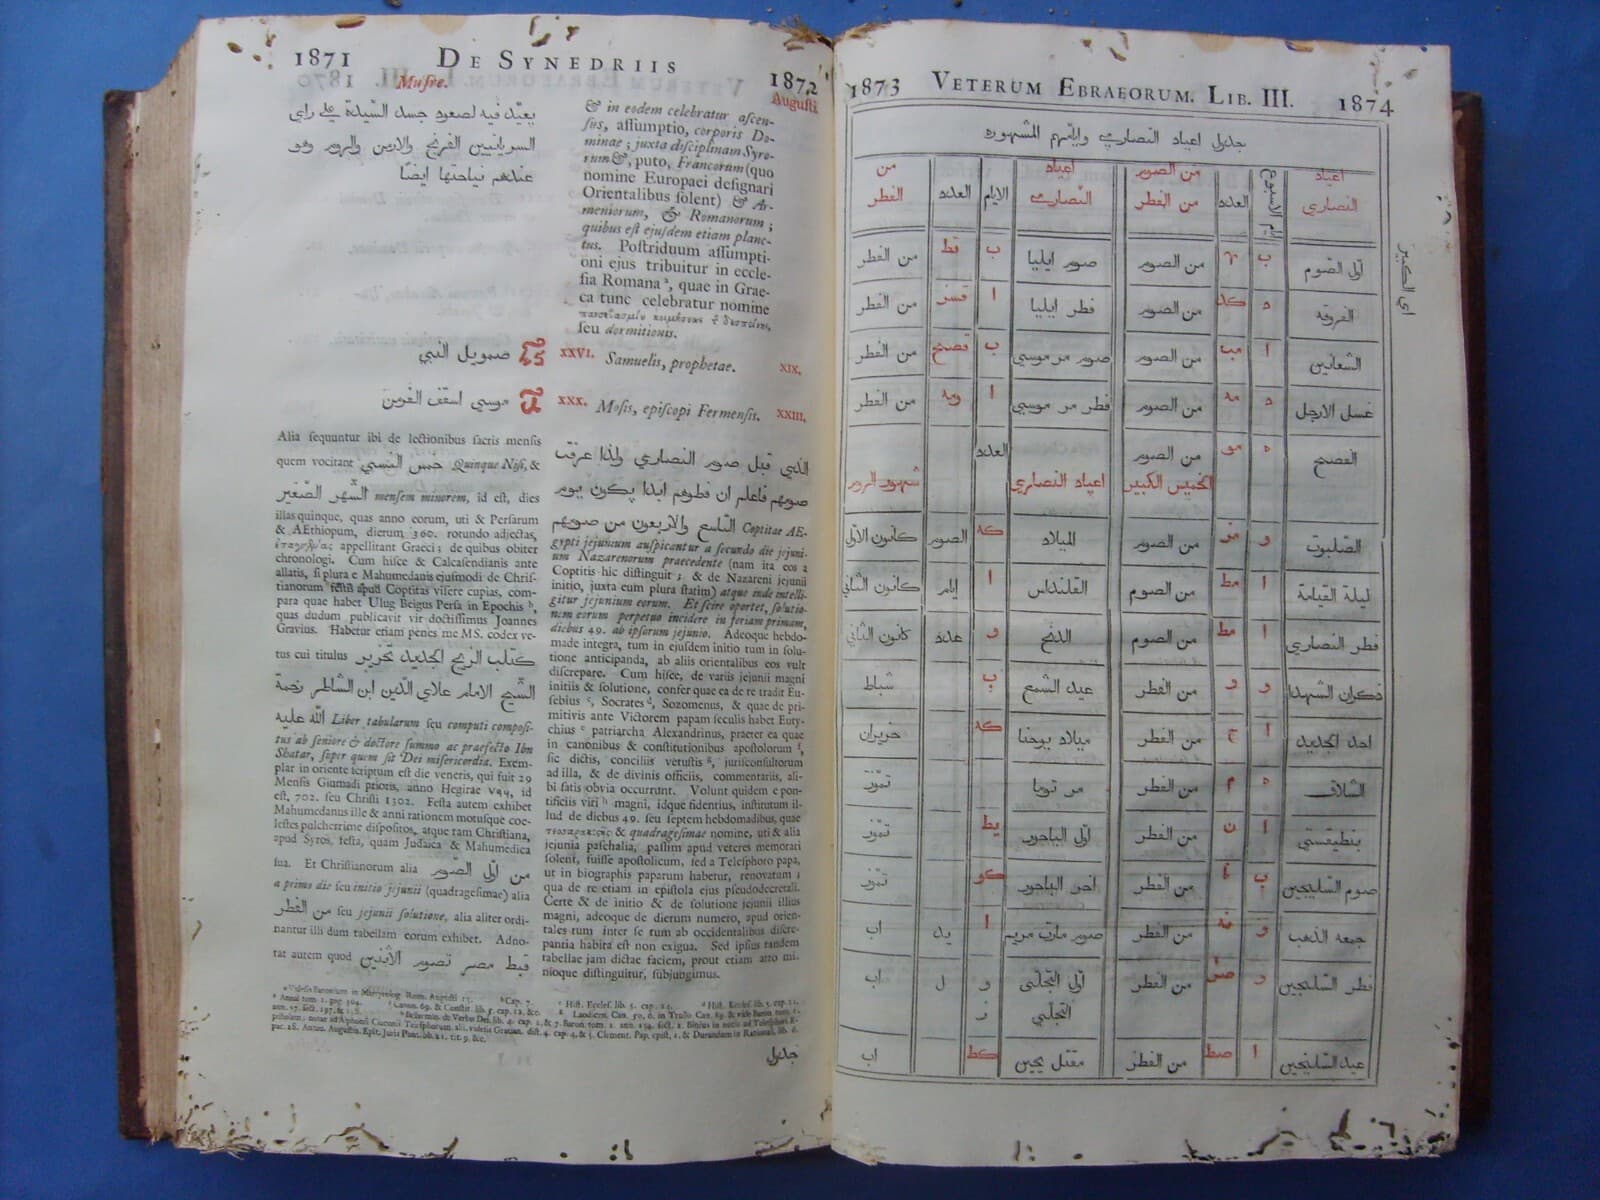 1871 DE SYNEDRIIS 1872
Musre. Augusti
يعيّد فيه لصعود جسد السّيدة علي راي
السريانيين الفرنج والارمن والروم وهو
عندهم نياحتها ايضًا
& in eodem celebratur ascen-
sus, assumptio, corporis Do-
minae; juxta disciplinam Syro-
rum &, puto, Francorum (quo
nomine Europaei designari
Orientalibus solent) & Ar-
meniorum, & Romanorum;
quibus est ejusdem etiam planc-
tus. Postriduum assumpti-
oni ejus tribuitur in eccle-
sia Romana a, quae in Grae-
ca tunc celebratur nomine
seu dormitionis.
صمويل النبي
XXVI. Samuelis, prophetae. XIX.
موسي اسقف الفرمن
XXX. Mosis, episcopi Fermensis. XXIII.
Alia sequuntur ibi de lectionibus sacris mensis
quem vocitant خمس النسي Quinque Nisi, &
الشّهر الصّغير mensem minorem, id est, dies
illas quinque, quas anno eorum, uti & Persarum
& AEthiopum, dierum 360. rotundo adjectas,
appellitant Graeci; de quibus obiter
chronologi. Cum hisce & Calcasendianis ante
allatis, si plura e Mahumedanis ejusmodi de Chris-
tianorum festis apud Coptitas visere cupias, com-
para quae habet Ulug Beigus Persa in Epochis b,
quas dudum publicavit vir doctissimus Joannes
Gravius. Habetur etiam penes me MS. codex ve-
tus cui titulus كتاب الزيج الجديد تحرير
الشّيخ الامام علاي الدّين ابن الشاطر رحمة
اللّه عليه Liber tabularum seu computi composi-
tus ab seniore & doctore summo ac praefecto Ibn
Shatar, super quem sit Dei misericordia. Exem-
plar in oriente scriptum est die veneris, qui fuit 29
Mensis Giumadi prioris, anno Hegirae ٧٩٩, id
est, 702. seu Christi 1302. Festa autem exhibet
Mahumedanus ille & anni rationem motusque coe-
lestes pulcherrime dispositos, atque tam Christiana,
apud Syros, festa, quam Judaica & Mahumedica
sua. Et Christianorum alia من اوّل الصّوم
a primo die seu initio jejunii (quadragesimae) alia
من الفطر seu jejunii solutione, alia aliter ordi-
nantur illi dum tabellam eorum exhibet. Adno-
tat autem quod قبط مصر تصوم الاثنين
الذي قبل صوم النصاري ولذا عرفت
صومهم فاعلم ان فطرهم ابدا يكون يوم
التّاسع والاربعون من صومهم Coptitae AE-
gypti jejunium auspicantur a secundo die jejuni-
um Nazarenorum praecedente (nam ita eos a
Coptitis hic distinguit; & de Nazareni jejunii
initio, juxta eum plura statim) atque inde intelli-
gitur jejunium eorum. Et scire oportet, solutio-
nem eorum perpetuo incidere in feriam primam,
diebus 49. ab ipsorum jejunio. Adeoque hebdo-
made integra, tum in ejusdem initio tum in solu-
tione anticipanda, ab aliis orientalibus eos vult
discrepare. Cum hisce, de variis jejunii magni
initiis & solutione, confer quae ea de re tradit Eu-
sebius c, Socrates d, Sozomenus, & quae de pri-
mitivis ante Victorem papam seculis habet Euty-
chius e patriarcha Alexandrinus, praeter ea quae
in canonibus & constitutionibus apostolorum f,
sic dictis, conciliis vetustis g, jurisconsultorum
ad illa, & de divinis officiis, commentariis, ali-
bi satis obvia occurrunt. Volunt quidem e pon-
tificiis viri h magni, idque fidentius, institutum il-
lud de diebus 49. seu septem hebdomadibus, quae
& quadragesimae nomine, uti & alia
jejunia paschalia, passim apud veteres memorari
solent, fuisse apostolicum, sed a Telesphoro papa,
ut in biographis paparum habetur, renovatum;
qua de re etiam in epistola ejus pseudodecretali.
Certe & de initio & de solutione jejunii illius
magni, adeoque de dierum numero, apud orien-
tales tum inter se tum ab occidentalibus discre-
pantia habita est non exigua. Sed ipsius tandem
tabellae jam dictae faciem, prout etiam atro mi-
nioque distinguitur, subjungimus.
جدول
1873 VETERUM EBRAEORUM. LIB. III. 1874
جدول اعياد النصاري وايامهم المشهوره
اعياد النصاري ايام الاسبوع العدد من الصوم من الفطر اعياد النصاري الايام العدد من الفطر
اوّل الصّوم ب من الصوم صوم ايليا ب قط من الفطر
الفروقه ه كد من الصوم فطر ايليا ا من الفطر
الشعانين ا مب من الصوم صوم مر موسي ب من الفطر
غسل الارجل ه مه من الصوم فطر مر موسي ا من الفطر
الفصح ه مو من الصوم العدد
الخميس الكبير اعياد النصاري شهور الروم
الصّلبوت و مز من الصوم الميلاد كه الصوم كانون الاوّل
ليلة القيامة ا مط من الصوم القلنداس ا ايام كانون الثّاني
فطر النصاري ا مط من الصوم الدنح و عدد كانون الثّاني
ذكران الشهدا و و من الفطر عيد الشمع ب شباط
احد الجديد ا ح من الفطر ميلاد يوحنا كه حزيران
السّلاق ه م من الفطر مر توما تمّوز
بنطيقستي ا ن من الفطر اوّل الباحور يط تمّوز
صوم السّليحين ب من الفطر اخر الباحور كو تمّوز
جمعه الذهب و نه من الفطر صوم مارت مريم ا يد اب
فطر السّليحين و من الفطر اوّل التجلّي و ل اب
التجلّي
عيد السّليحين ا صط من الفطر مقتل يحيي كط اب
اي الكبير